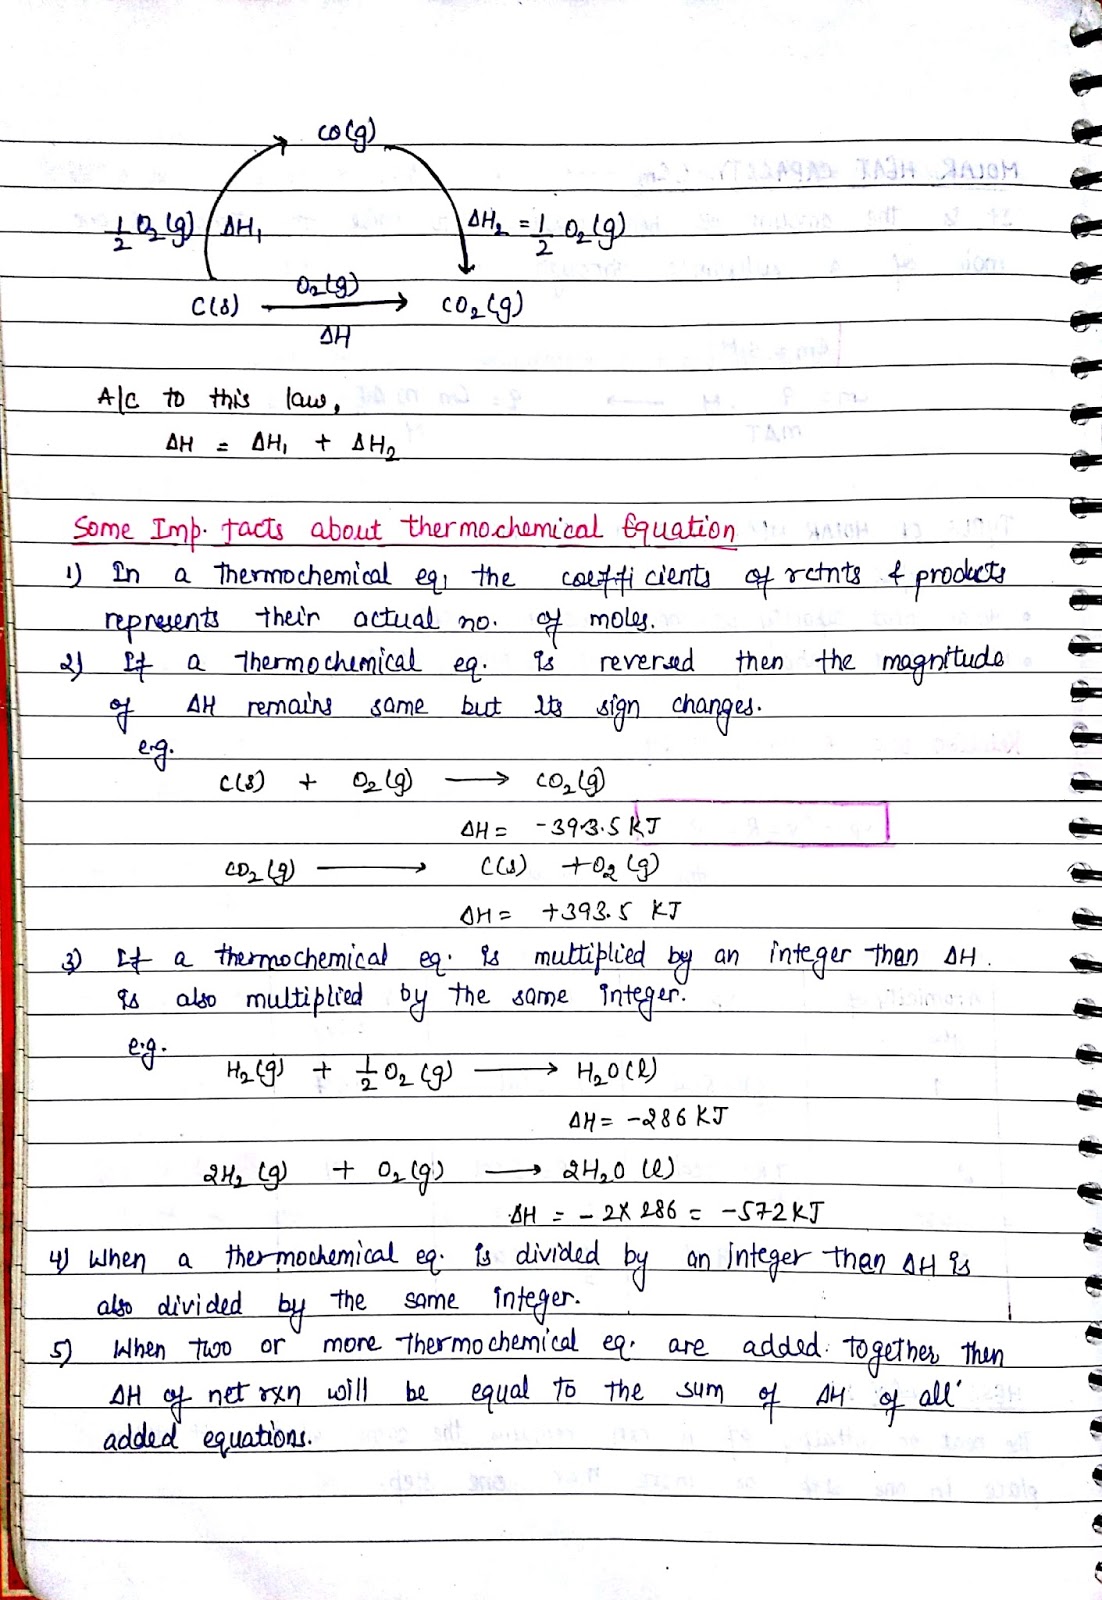 CO(g)
½ O₂(g) ΔH₁ ΔH₂ = ½ O₂(g)
O₂(g)
C(s) ⟶ CO₂(g)
ΔH
A/c to this law,
ΔH = ΔH₁ + ΔH₂
Some Imp. facts about thermochemical Equation
1) In a thermochemical eq, the coefficients of rctnts & products
represents their actual no. of moles.
2) If a thermochemical eq. is reversed then the magnitude
of ΔH remains same but its sign changes.
e.g.
C(s) + O₂(g) ⟶ CO₂(g)
ΔH = -393.5 KJ
CO₂(g) ⟶ C(s) + O₂(g)
ΔH = +393.5 KJ
3) If a thermochemical eq. is multiplied by an integer than ΔH.
is also multiplied by the same integer.
e.g.
H₂(g) + ½ O₂(g) ⟶ H₂O(l)
ΔH = -286 KJ
2H₂(g) + O₂(g) ⟶ 2H₂O (l)
ΔH = -2x 286 = -572 KJ
4) When a thermochemical eq. is divided by an integer than ΔH is
also divided by the same integer.
5) When two or more thermochemical eq. are added together, then
ΔH of net rxn will be equal to the sum of ΔH of all
added equations.